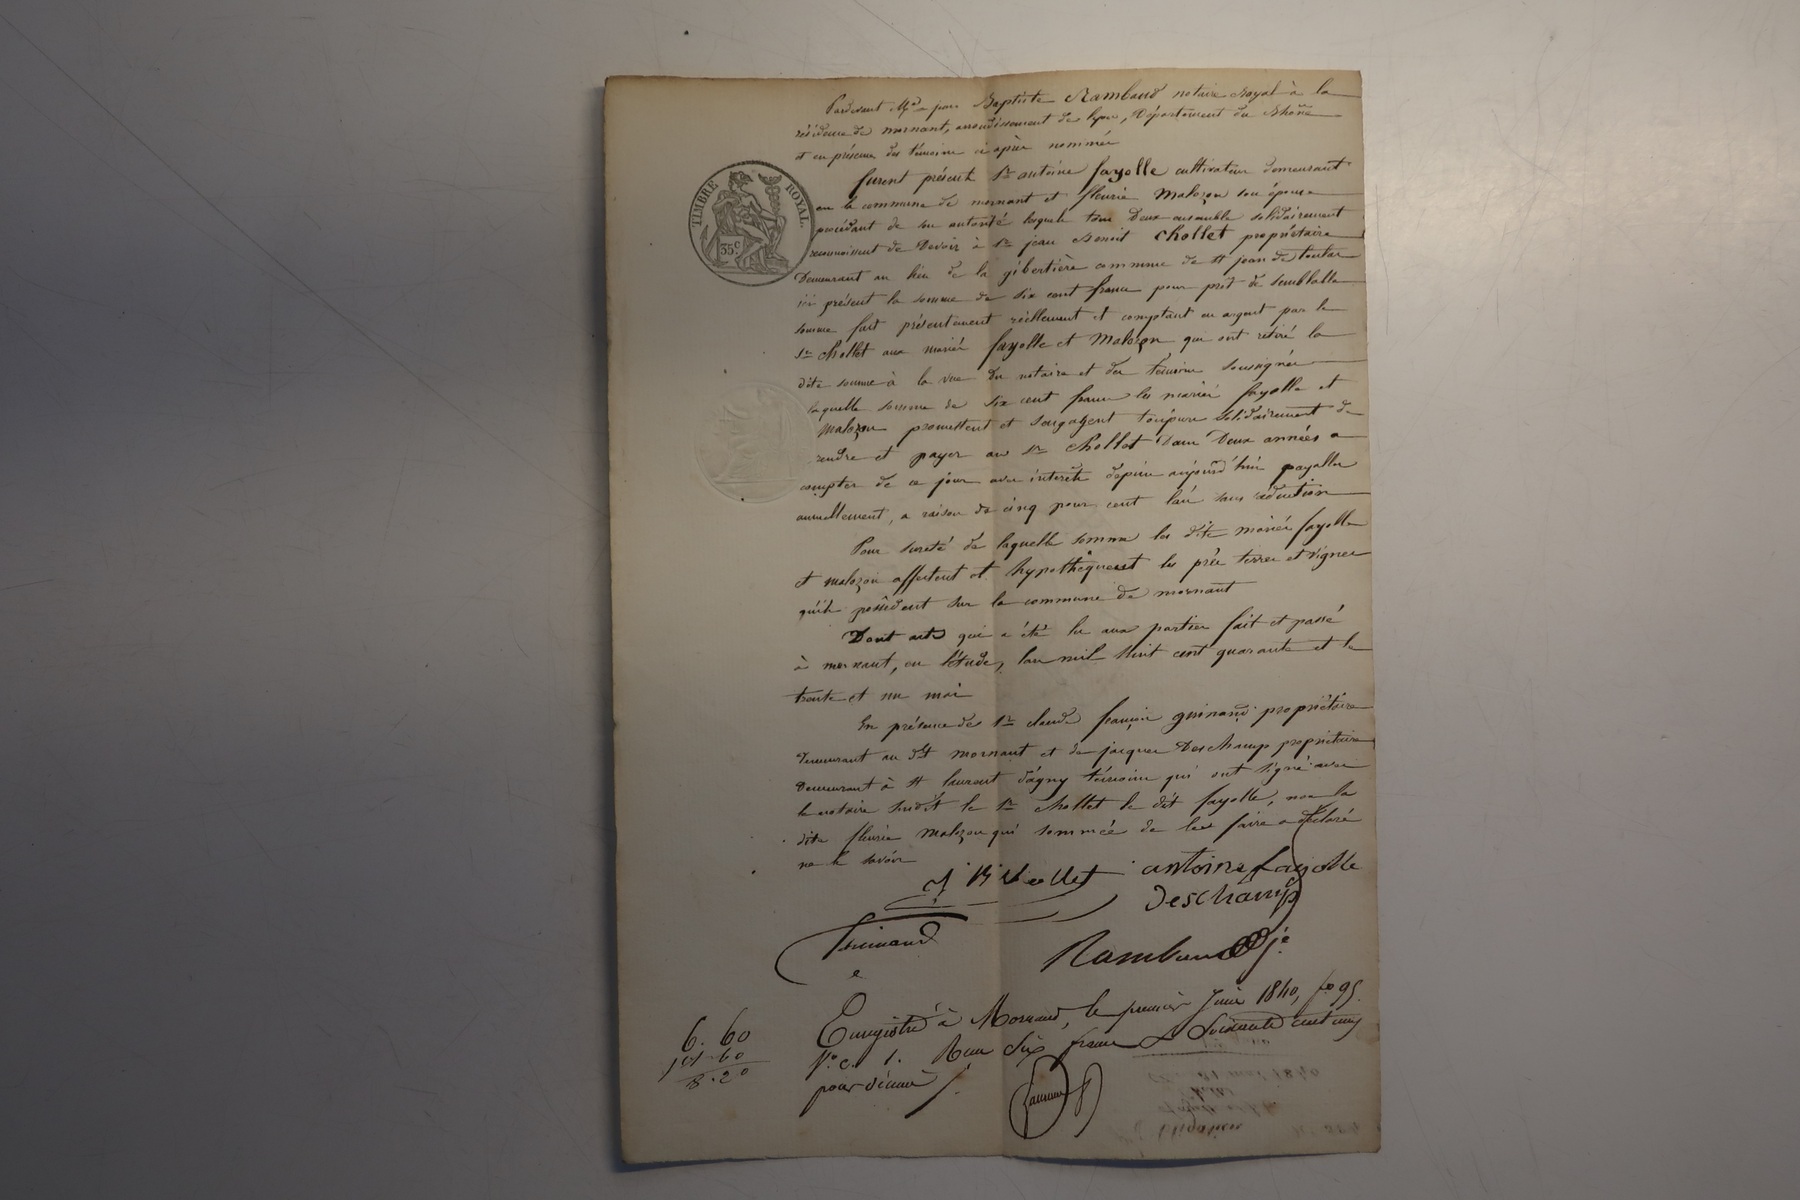 Pardevant Me jean Baptiste Rambaud notaire Royal à la
résidence de mornant, arrondissement de lyon, Département du Rhône
et en présence des témoins ci après nommés
furent présents Sr antoine fayolle cultivateur demeurant
en la commune de mornant et fleurie Malozon son épouse
procédant de son autorité lesquels tous Deux ensemble solidairement
reconnaissent de Devoir à Sr jean Benoit Chollet propriétaire
Demeurant au lieu de la gibertière commune de st jean de toulas
ici présent la somme de six cent francs pour pret de semblable
somme fait présentement réellement et comptant en argent par le
Sr Chollet aux mariés fayolle et Malozon qui ont retiré la
dite somme à la vue du notaire et des témoins soussignés
laquelle somme de six cent francs les mariés fayolle et
Malozon promettent et s'engagent toujours solidairement de
rendre et payer au Sr Chollet Dans Deux années a
compter de ce jour avec intérêts depuis aujourd'hui payables
annuellement, a raison de cinq pour cent l'an sans réduction
Pour sureté de laquelle somme les dits mariés fayolle
et malozon affectent et hypothèquent les prés terres et vignes
qu'ils possèdent sur la commune de mornant
Dont acte qui a été lu aux parties fait et passé
à mornant, en l'étude, l'an mil huit cent quarante et le
trente et un mai
En présence de Sr claude françois guinand propriétaire
demeurant au dt mornant et de jacques Deschamp propriétaire
Demeurant à st laurent d'agny témoins qui ont signé avec
le notaire susdit le Sr Chollet le dit fayolle, non la
dite fleurie Malozon qui sommée de les faire a déclaré
ne le savoir
TIMBRE ROYAL.
35 c.
J. B. Chollet antoine fayolle
Deschamp
Guinand
Rambaud je
Enregistré à Mornant, le premier Juin 1840, fo 95.
Vo c. 1. Reçu Six francs Soixante centimes
pour décime
6. 60
1. 60
8. 20
31 mai 1840